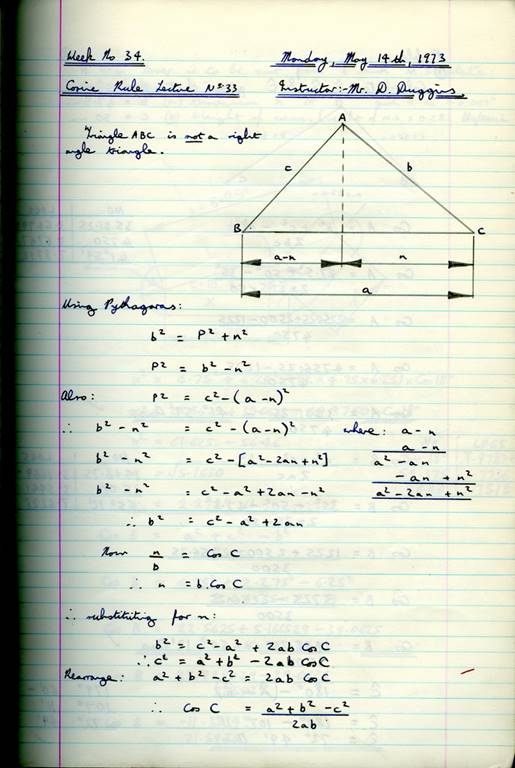 Week No 34. Monday, May 14th, 1973
Cosine Rule Lecture No 33 Instructor:- Mr. D. Duggins.
Triangle ABC is not a right
angle triangle.
A
c b
B C
a-n n
a
Using Pythagoras:
b² = P² + n²
P² = b² - n²
Also: P² = c² - (a - n)²
∴ b² - n² = c² - (a-n)² where: a - n
a - n
b² - n² = c² - [a² - 2an + n²] a² - an
- an + n²
b² - n² = c² - a² + 2an - n² a² - 2an + n²
∴ b² = c² - a² + 2an
Now n/b = Cos C
∴ n = b.Cos C
∴ substituting for n:
b² = c² - a² + 2ab Cos C
∴ c² = a² + b² - 2ab Cos C
Rearrange: a² + b² - c² = 2ab Cos C
∴ Cos C = a² + b² - c²
2ab